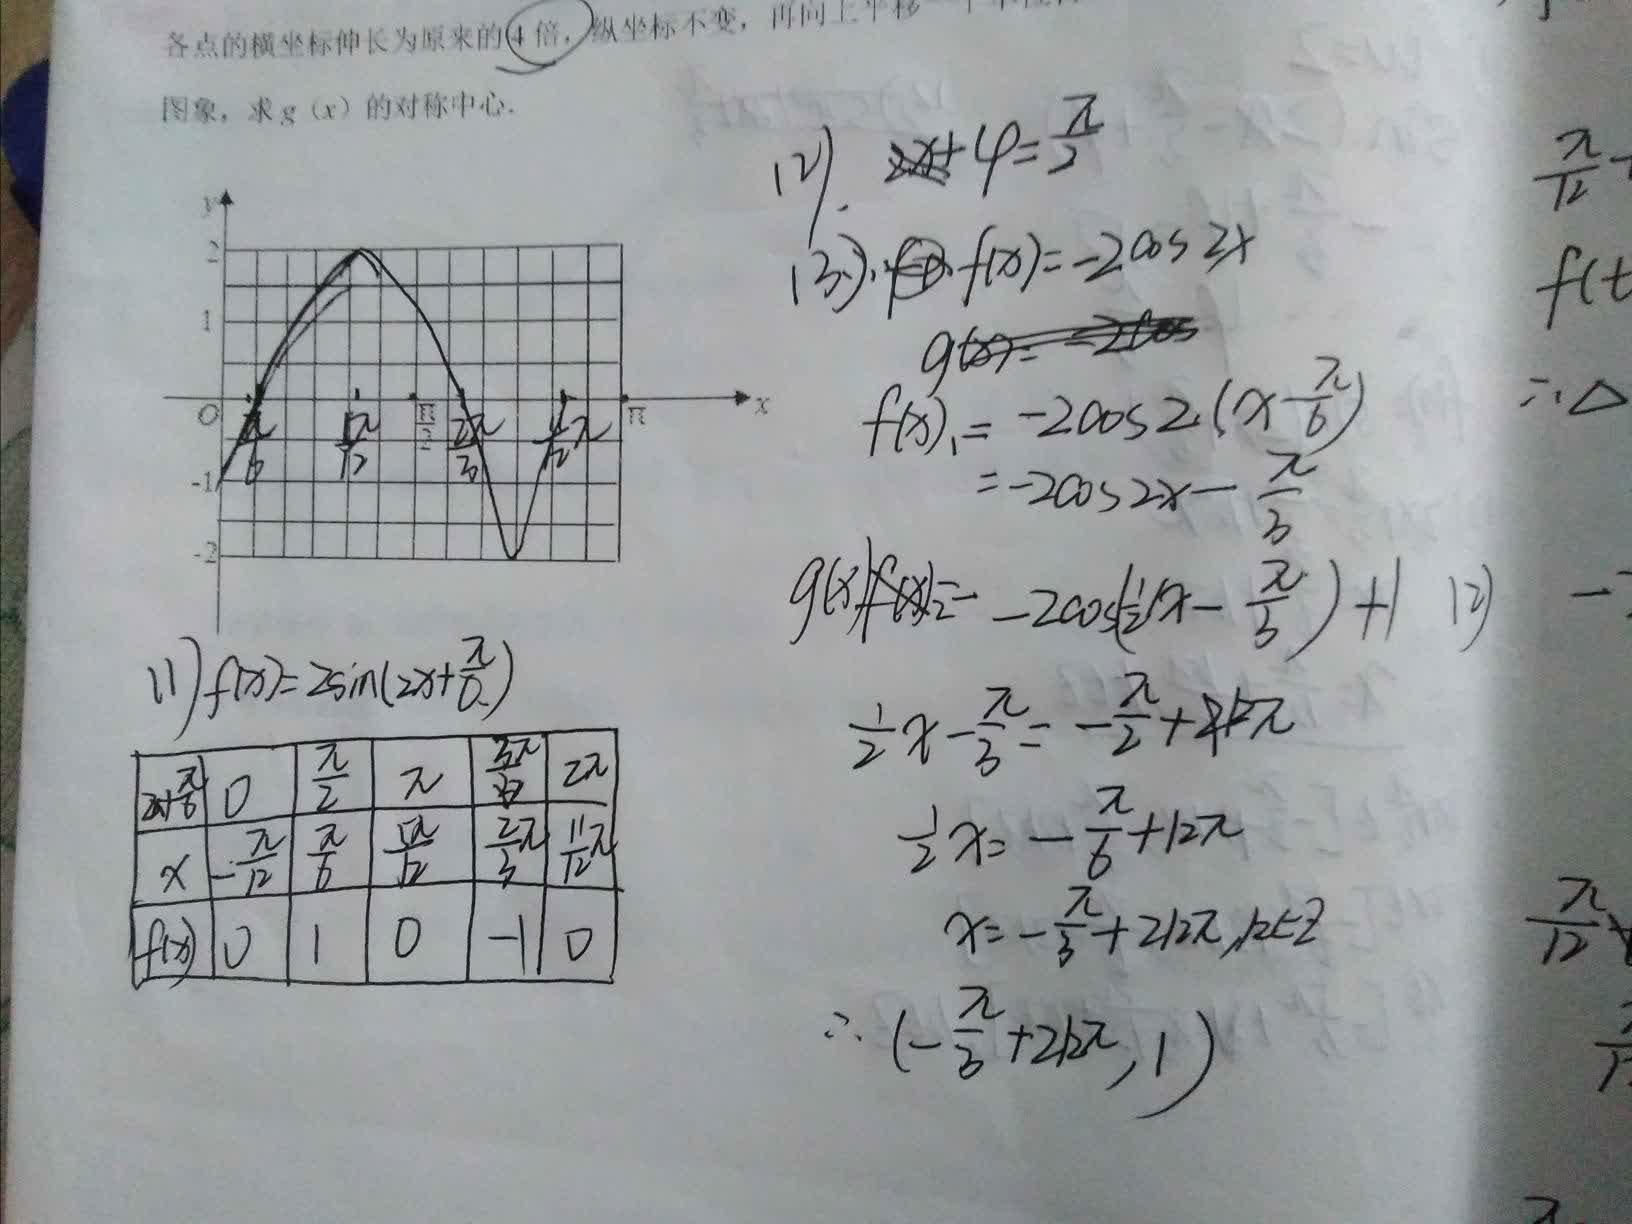 各点的横坐标伸长为原来的4倍，纵坐标不变，再向上平移一个单位
图象，求g（x）的对称中心.
y
2
1
O
-1
-2
π/6
5π/12
π/2
2π/3
11/12π
π
x
(1) f(x)=2sin(2x+π/6)
2x+π/6 0 π/2 π 3π/2 2π
x -π/12 π/6 5π/12 2/3π 11/12π
f(x) 0 1 0 -1 0
(2). φ=π/2
(3). f(x)=-2cos2x
f(x)₁=-2cos2(x-π/6)
=-2cos2x-π/3
g(x)=-2cos(1/2x-π/3)+1
1/2x-π/3=-π/2+kπ
1/2x=-π/6+kπ
x=-π/3+2kπ,k∈Z
∴(-π/3+2kπ,1)
π/12
f(t
∴△
(2) -
π/12